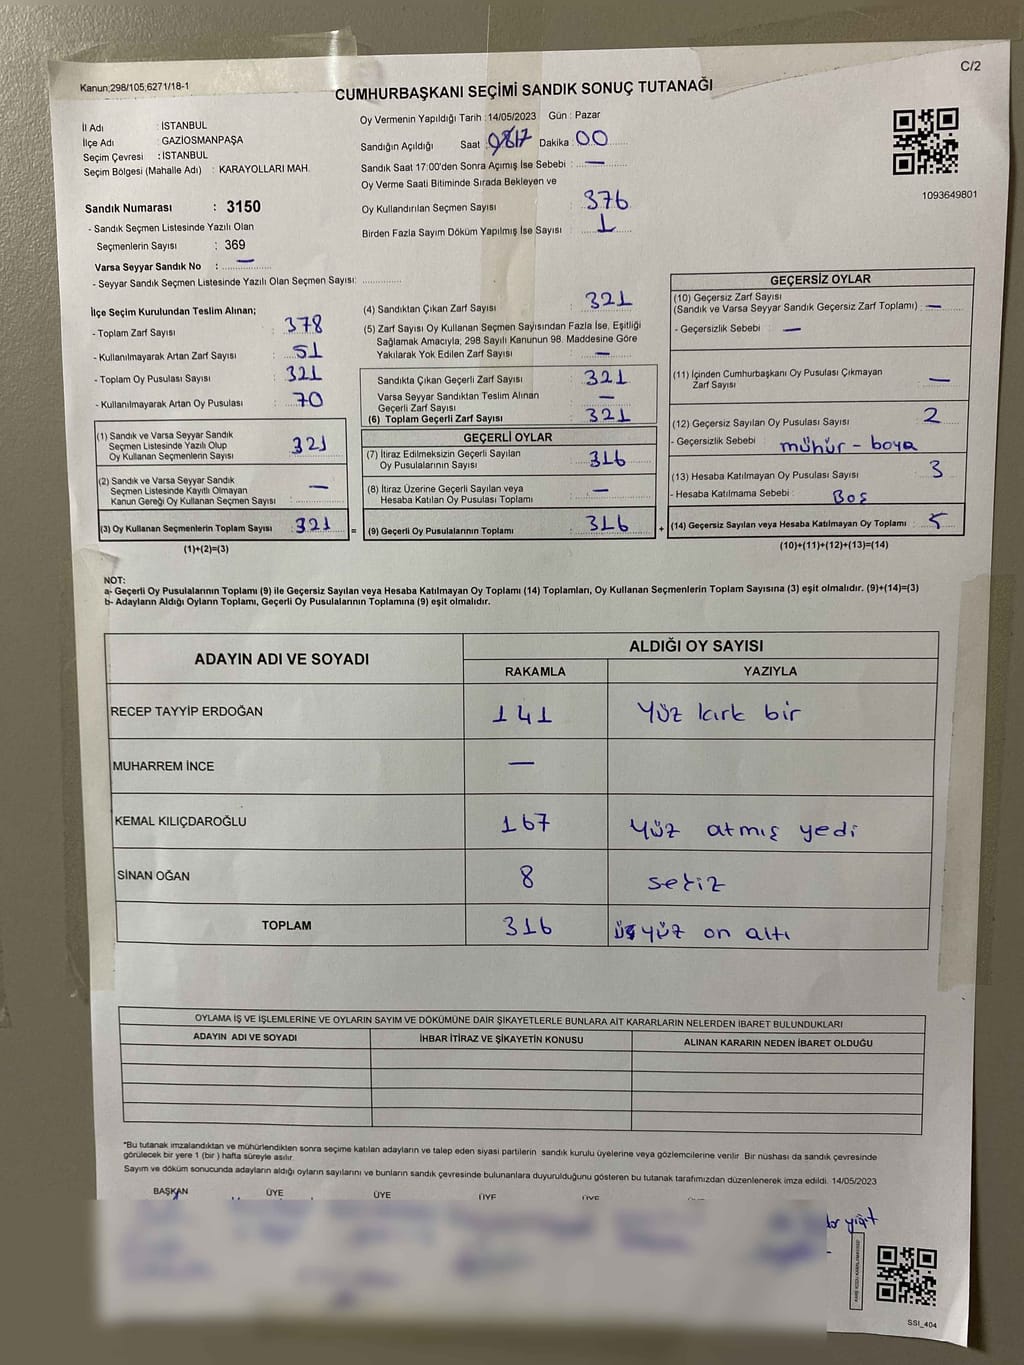 Kanun;298/105,6271/18-1
C/2
CUMHURBAŞKANI SEÇİMİ SANDIK SONUÇ TUTANAĞI
İl Adı : İSTANBUL
İlçe Adı : GAZİOSMANPAŞA
Seçim Çevresi : İSTANBUL
Seçim Bölgesi (Mahalle Adı) : KARAYOLLARI MAH.
Sandık Numarası : 3150
- Sandık Seçmen Listesinde Yazılı Olan
Seçmenlerin Sayısı : 369
Varsa Seyyar Sandık No : —
- Seyyar Sandık Seçmen Listesinde Yazılı Olan Seçmen Sayısı:
Oy Vermenin Yapıldığı Tarih : 14/05/2023 Gün : Pazar
Sandığın Açıldığı Saat 17 Dakika 00
Sandık Saat 17:00'den Sonra Açılmış İse Sebebi : —
Oy Verme Saati Bitiminde Sırada Bekleyen ve
Oy Kullandırılan Seçmen Sayısı 376
Birden Fazla Sayım Döküm Yapılmış İse Sayısı : 1
1093649801
İlçe Seçim Kurulundan Teslim Alınan;
- Toplam Zarf Sayısı : 378
- Kullanılmayarak Artan Zarf Sayısı : 51
- Toplam Oy Pusulası Sayısı : 321
- Kullanılmayarak Artan Oy Pusulası : 70
(1) Sandık ve Varsa Seyyar Sandık
Seçmen Listesinde Yazılı Olup
Oy Kullanan Seçmenlerin Sayısı : 321
(2) Sandık ve Varsa Seyyar Sandık
Seçmen Listesinde Kayıtlı Olmayan
Kanun Gereği Oy Kullanan Seçmen Sayısı : —
(3) Oy Kullanan Seçmenlerin Toplam Sayısı : 321 =
(1)+(2)=(3)
(4) Sandıktan Çıkan Zarf Sayısı : 321
(5) Zarf Sayısı Oy Kullanan Seçmen Sayısından Fazla İse, Eşitliği
Sağlamak Amacıyla, 298 Sayılı Kanunun 98. Maddesine Göre
Yakılarak Yok Edilen Zarf Sayısı : —
Sandıkta Çıkan Geçerli Zarf Sayısı : 321
Varsa Seyyar Sandıktan Teslim Alınan
Geçerli Zarf Sayısı : —
(6) Toplam Geçerli Zarf Sayısı : 321
GEÇERLİ OYLAR
(7) İtiraz Edilmeksizin Geçerli Sayılan
Oy Pusulalarının Sayısı : 316
(8) İtiraz Üzerine Geçerli Sayılan veya
Hesaba Katılan Oy Pusulası Toplamı : —
(9) Geçerli Oy Pusulalarının Toplamı : 316 +
GEÇERSİZ OYLAR
(10) Geçersiz Zarf Sayısı
(Sandık ve Varsa Seyyar Sandık Geçersiz Zarf Toplamı) : —
- Geçersizlik Sebebi : —
(11) İçinden Cumhurbaşkanı Oy Pusulası Çıkmayan
Zarf Sayısı : —
(12) Geçersiz Sayılan Oy Pusulası Sayısı : 2
- Geçersizlik Sebebi : mühür - boya
(13) Hesaba Katılmayan Oy Pusulası Sayısı : 3
- Hesaba Katılmama Sebebi : Boş
(14) Geçersiz Sayılan veya Hesaba Katılmayan Oy Toplamı : 5
(10)+(11)+(12)+(13)=(14)
NOT:
a- Geçerli Oy Pusulalarının Toplamı (9) ile Geçersiz Sayılan veya Hesaba Katılmayan Oy Toplamı (14) Toplamları, Oy Kullanan Seçmenlerin Toplam Sayısına (3) eşit olmalıdır. (9)+(14)=(3)
b- Adayların Aldığı Oyların Toplamı, Geçerli Oy Pusulalarının Toplamına (9) eşit olmalıdır.
ADAYIN ADI VE SOYADI ALDIĞI OY SAYISI
RAKAMLA YAZIYLA
RECEP TAYYİP ERDOĞAN 141 Yüz kırk bir
MUHARREM İNCE —
KEMAL KILIÇDAROĞLU 167 Yüz atmış yedi
SİNAN OĞAN 8 sekiz
TOPLAM 316 üç yüz on altı
OYLAMA İŞ VE İŞLEMLERİNE VE OYLARIN SAYIM VE DÖKÜMÜNE DAİR ŞİKAYETLERLE BUNLARA AİT KARARLARIN NELERDEN İBARET BULUNDUKLARI
ADAYIN ADI VE SOYADI İHBAR İTİRAZ VE ŞİKAYETİN KONUSU ALINAN KARARIN NEDEN İBARET OLDUĞU
*Bu tutanak imzalandıktan ve mühürlendikten sonra seçime katılan adayların ve talep eden siyasi partilerin sandık kurulu üyelerine veya gözlemcilerine verilir. Bir nüshası da sandık çevresinde
görülecek bir yere 1 (bir ) hafta süreyle asılır.
Sayım ve döküm sonucunda adayların aldığı oyların sayılarını ve bunların sandık çevresinde bulunanlara duyurulduğunu gösteren bu tutanak tarafımızdan düzenlenerek imza edildi. 14/05/2023
BAŞKAN ÜYE ÜYE ÜYE ÜYE
SSI_404